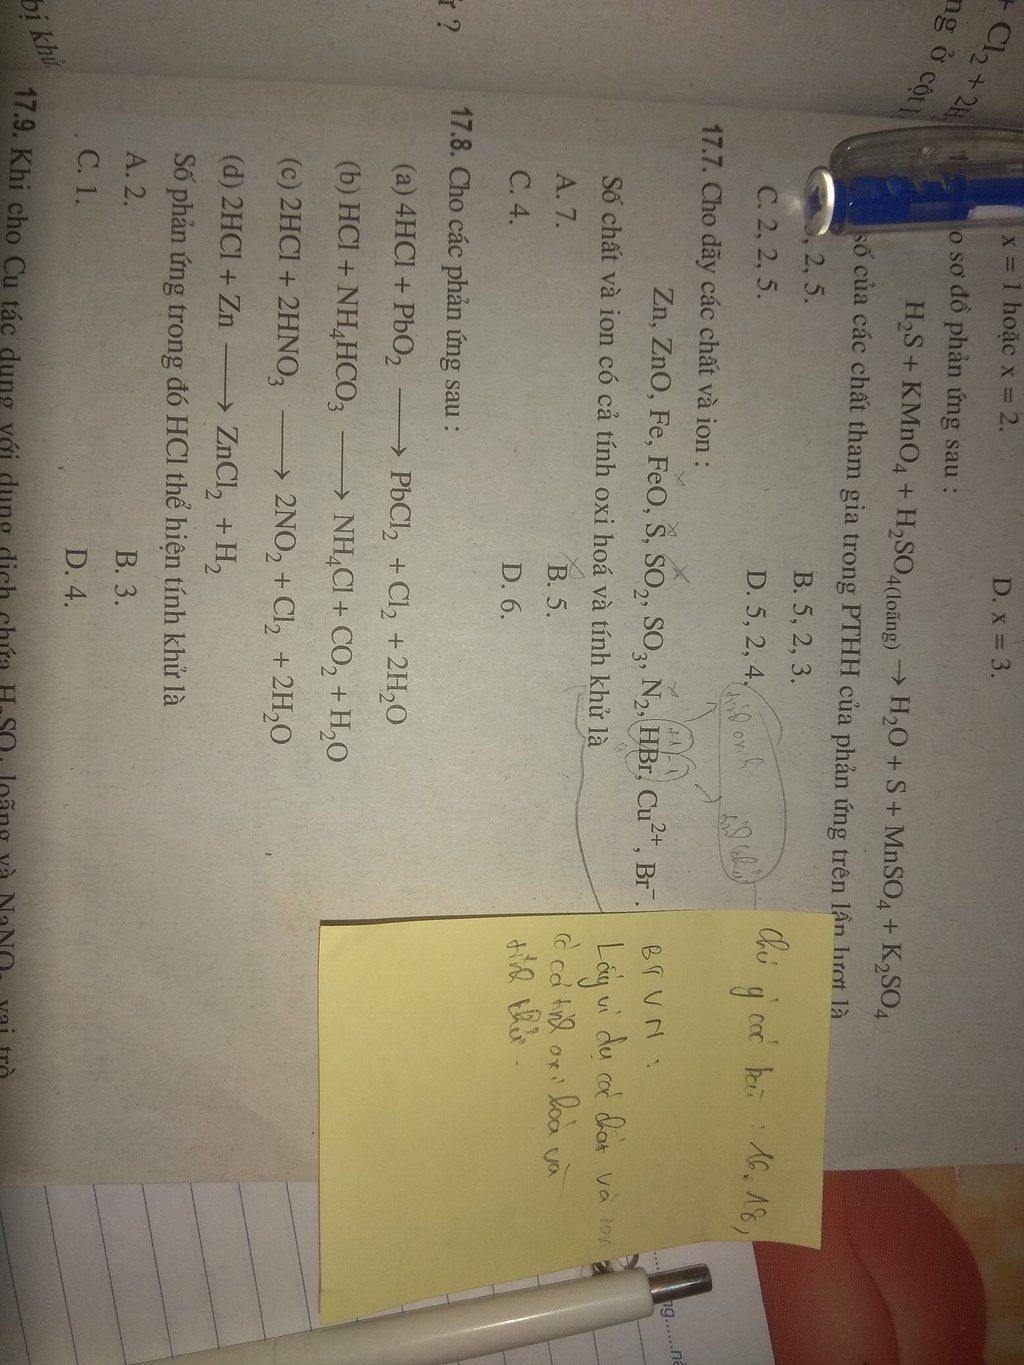 bị khử
r ?
+ Cl₂ + 2H
ng ở cột
x = 1 hoặc x = 2.
D. x = 3.
o sơ đồ phản ứng sau :
H₂S + KMnO₄ + H₂SO₄(loãng) → H₂O + S + MnSO₄ + K₂SO₄
số của các chất tham gia trong PTHH của phản ứng trên lần lượt là
, 2, 5.
B. 5, 2, 3.
C. 2, 2, 5.
D. 5, 2, 4.
tính oxi h
tính khử
17.7. Cho dãy các chất và ion :
+1 -1
Zn, ZnO, Fe, FeO, S, SO₂, SO₃, N₂, HBr, Cu²⁺, Br⁻.
Số chất và ion có cả tính oxi hoá và tính khử là
A. 7.
B. 5.
C. 4.
D. 6.
17.8. Cho các phản ứng sau :
(a) 4HCl + PbO₂ → PbCl₂ + Cl₂ + 2H₂O
(b) HCl + NH₄HCO₃ → NH₄Cl + CO₂ + H₂O
(c) 2HCl + 2HNO₃ → 2NO₂ + Cl₂ + 2H₂O
(d) 2HCl + Zn → ZnCl₂ + H₂
Số phản ứng trong đó HCl thể hiện tính khử là
A. 2.
B. 3.
C. 1.
D. 4.
17.9. Khi cho Cu tác dụng với dung dịch chứa H₂SO₄ loãng và NaNO₃, vai trò
chú ý các bài : 16.18,
BTVN :
Lấy ví dụ các chất và ion
có cả tính oxi hoá và
tính khử.